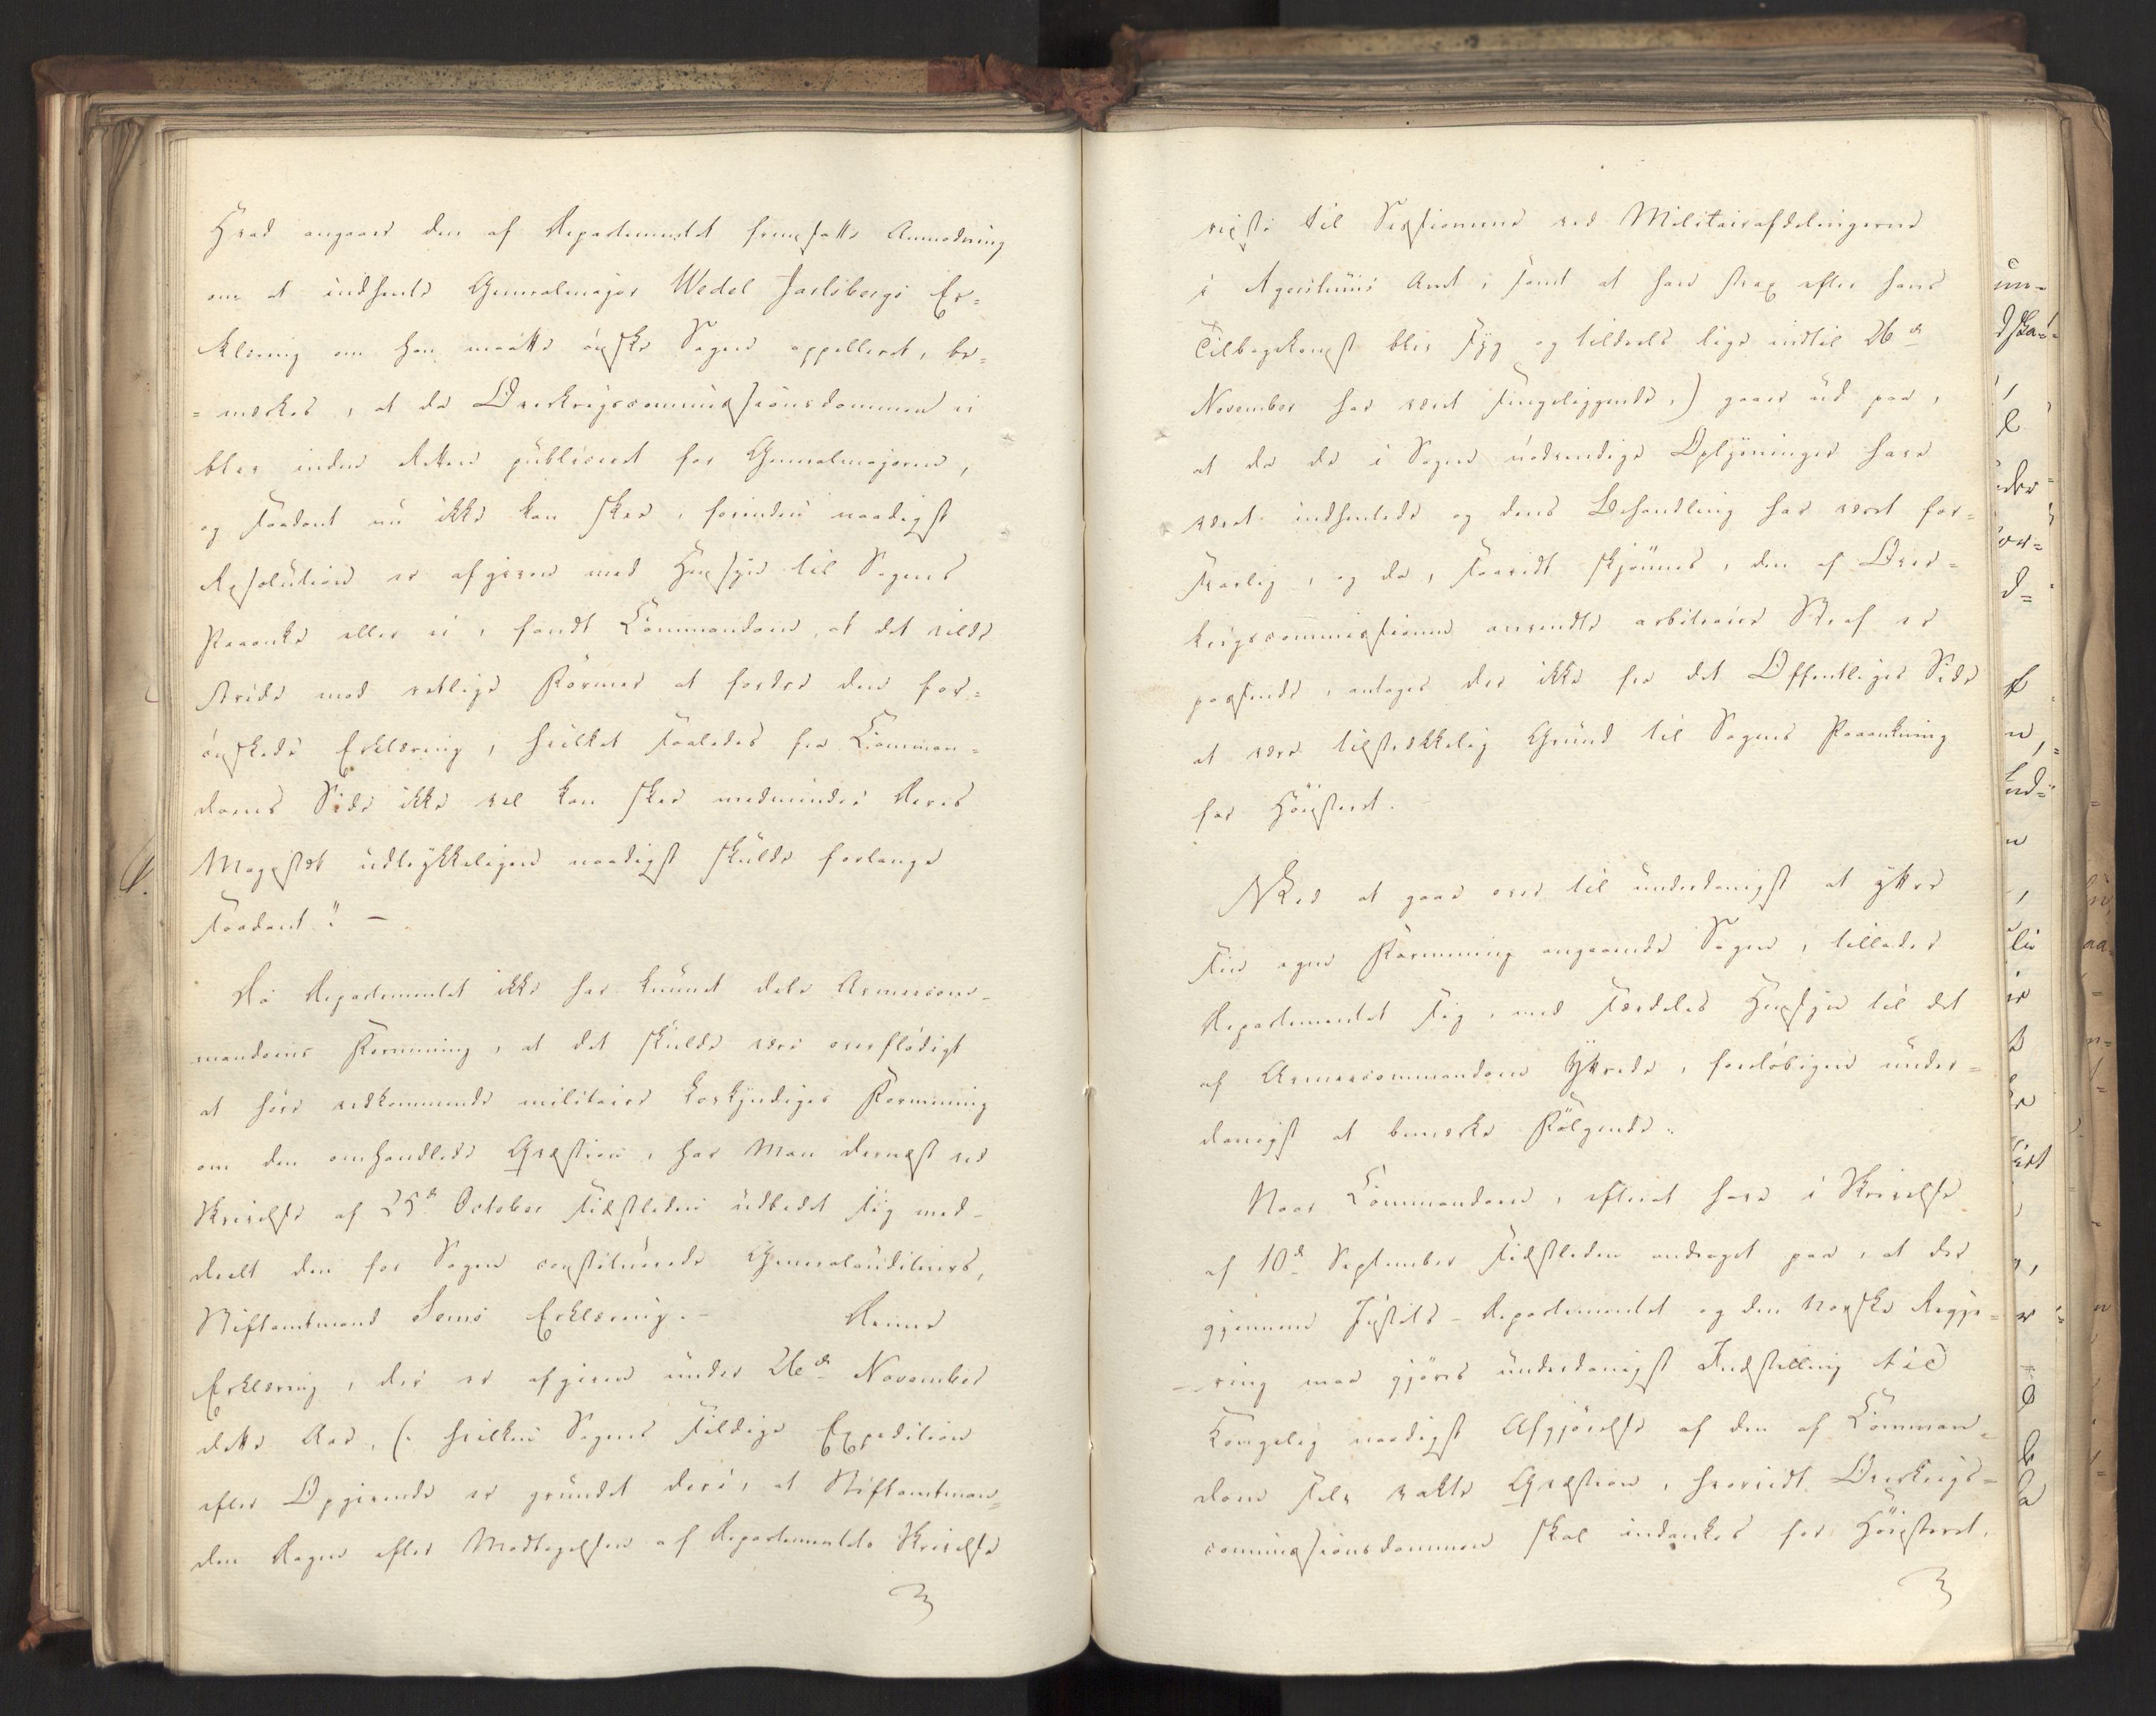 Hvad angaaer den af Departementet fremsatte Anmodning
om at indhente Generalmajor Wedel Jarlsbergs Er=
klæring om han maatte ønske Sagen appelleret, be=
=mærkes, at da Overkrigscommissionsdommen ei
blev inden Retten publiceret for Generalmajoren,
og saadant nu ikke kan skee, forinden naadigst
Resolution er afgiven med Hensyn til Sagens
Paaanke eller ei, fandt Commandoen, at det vilde
stride mod retlige Former at fordre den for=
ønskede Erklæring, hvilket saaledes fra Comman=
doens Side ikke vel kan skee medmindre Deres
Majestæt udtrykkeligen naadigst skulde forlange
saadant". –
Da Departementet ikke har kunnet dele Armeecom=
mandoens Formening, at det skulde være overflødigt
at høre vedkommende militaire Lovkyndiges Formening
om den omhandlede Qvæstion, har Man dernæst ved
Skrivelse af 25de October sidstleden udbedet sig med=
deelt den for Sagen constituerede Generalauditeurs,
Stiftamtmand Sems Erklæring. – Denne
Erklæring, der er afgiven under 26de November
dette Aar, (: hvilken Sagens sildige Expedition
efter Opgivende er grundet deri, at Stiftamtman=
den Dagen efter Modtagelsen af Departementets Skrivelse
reiste til Sessionerne ved Militairafdelingerne
i Agershuus Amt, samt at han strax efter hans
Tilbagekomst blev syg og tildeels lige indtil 26de
November har været sengeliggende,) gaaer ud paa,
at da de i Sagen nødvendige Oplysninger have
været indhentede og dens Behandling har været for=
svarlig, og da, saavidt skjønnes, den af Over=
krigscommissionen anvendte arbitraire Straf er
passende, antages der ikke fra det Offentliges Side
at være tilstrækkelig Grund til Sagens Paaankning
for Høiesteret.
Ved at gaae over til underdanigst at yttre
sin egen Formening angaaende Sagen, tillader
Departementet sig, med særdeles Hensyn til det
af Armeecommandoen Yttrede, foreløbigen under=
danigst at bemærke Følgende:
Naar Commandoen, efterat have i Skrivelse
af 10de September sidstleden andraget paa, at der
gjennem Justits-Departementet og den norske Regje=
=ring maa gjøres underdanigst Indstilling til
Kongelig naadigst Afgjørelse af den af Comman=
doen selv vakte Qvæstion, hvorvidt Overkrigs=
commissionsdommen skal indankes for Høiesteret,